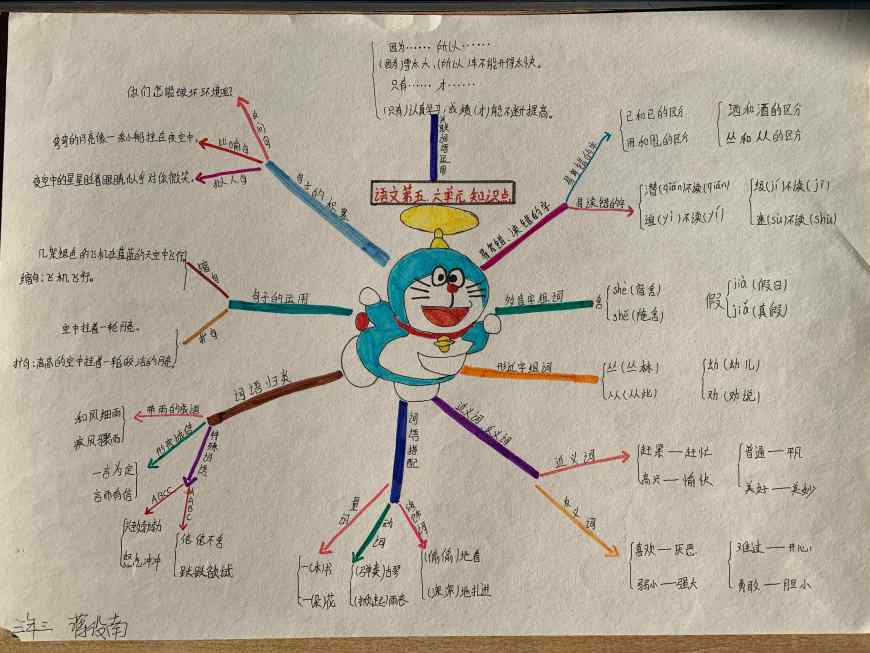 因为…… 所以……
(因为)雪太大,(所以)车不能开得太快。
只有…… 才……
(只有)认真学习,成绩(才)能不断提高。
关联词语运用
语文第五、六单元知识点
句子的积累
反问句
你们怎能破坏环境呢?
比喻句
弯弯的月亮像一条小船挂在夜空中。
拟人句
夜空中的星星眨着眼睛,似乎对你微笑。
句子的运用
缩句
几架银色的飞机在蓝蓝的天空中飞行。
缩句:飞机飞行。
扩句
空中挂着一轮月亮。
扩句:高高的空中挂着一轮皎洁的月亮。
词语归类
带雨的成语
和风细雨
疾风骤雨
一言为定
言而有信
特殊词语
AABC
ABCC
怒气冲冲
跃跃欲试
词语搭配
量词
一(本)书
一(朵)花
动词
(弹奏)古琴
(掀起)雨衣
(偷偷)地看
(深深)地扎进
近义词 反义词
近义词
赶紧—赶忙
高兴—愉快
普通—平凡
美好—美妙
反义词
喜欢—厌恶
弱小—强大
难过—开心
勇敢—胆小
形近字组词
丛(丛林)
从(从此)
幼(幼儿)
劝(劝说)
多音字组词
舍
shè(宿舍)
shě(施舍)
假
jià(假日)
jiǎ(真假)
易写错、读错的字
易写错的字
己和已的区分
用和甩的区分
洒和酒的区分
丛和从的区分
易读错的字
潜(qián)不读(qiǎn)
速(sù)不读(shù)
三年三 蒋设南